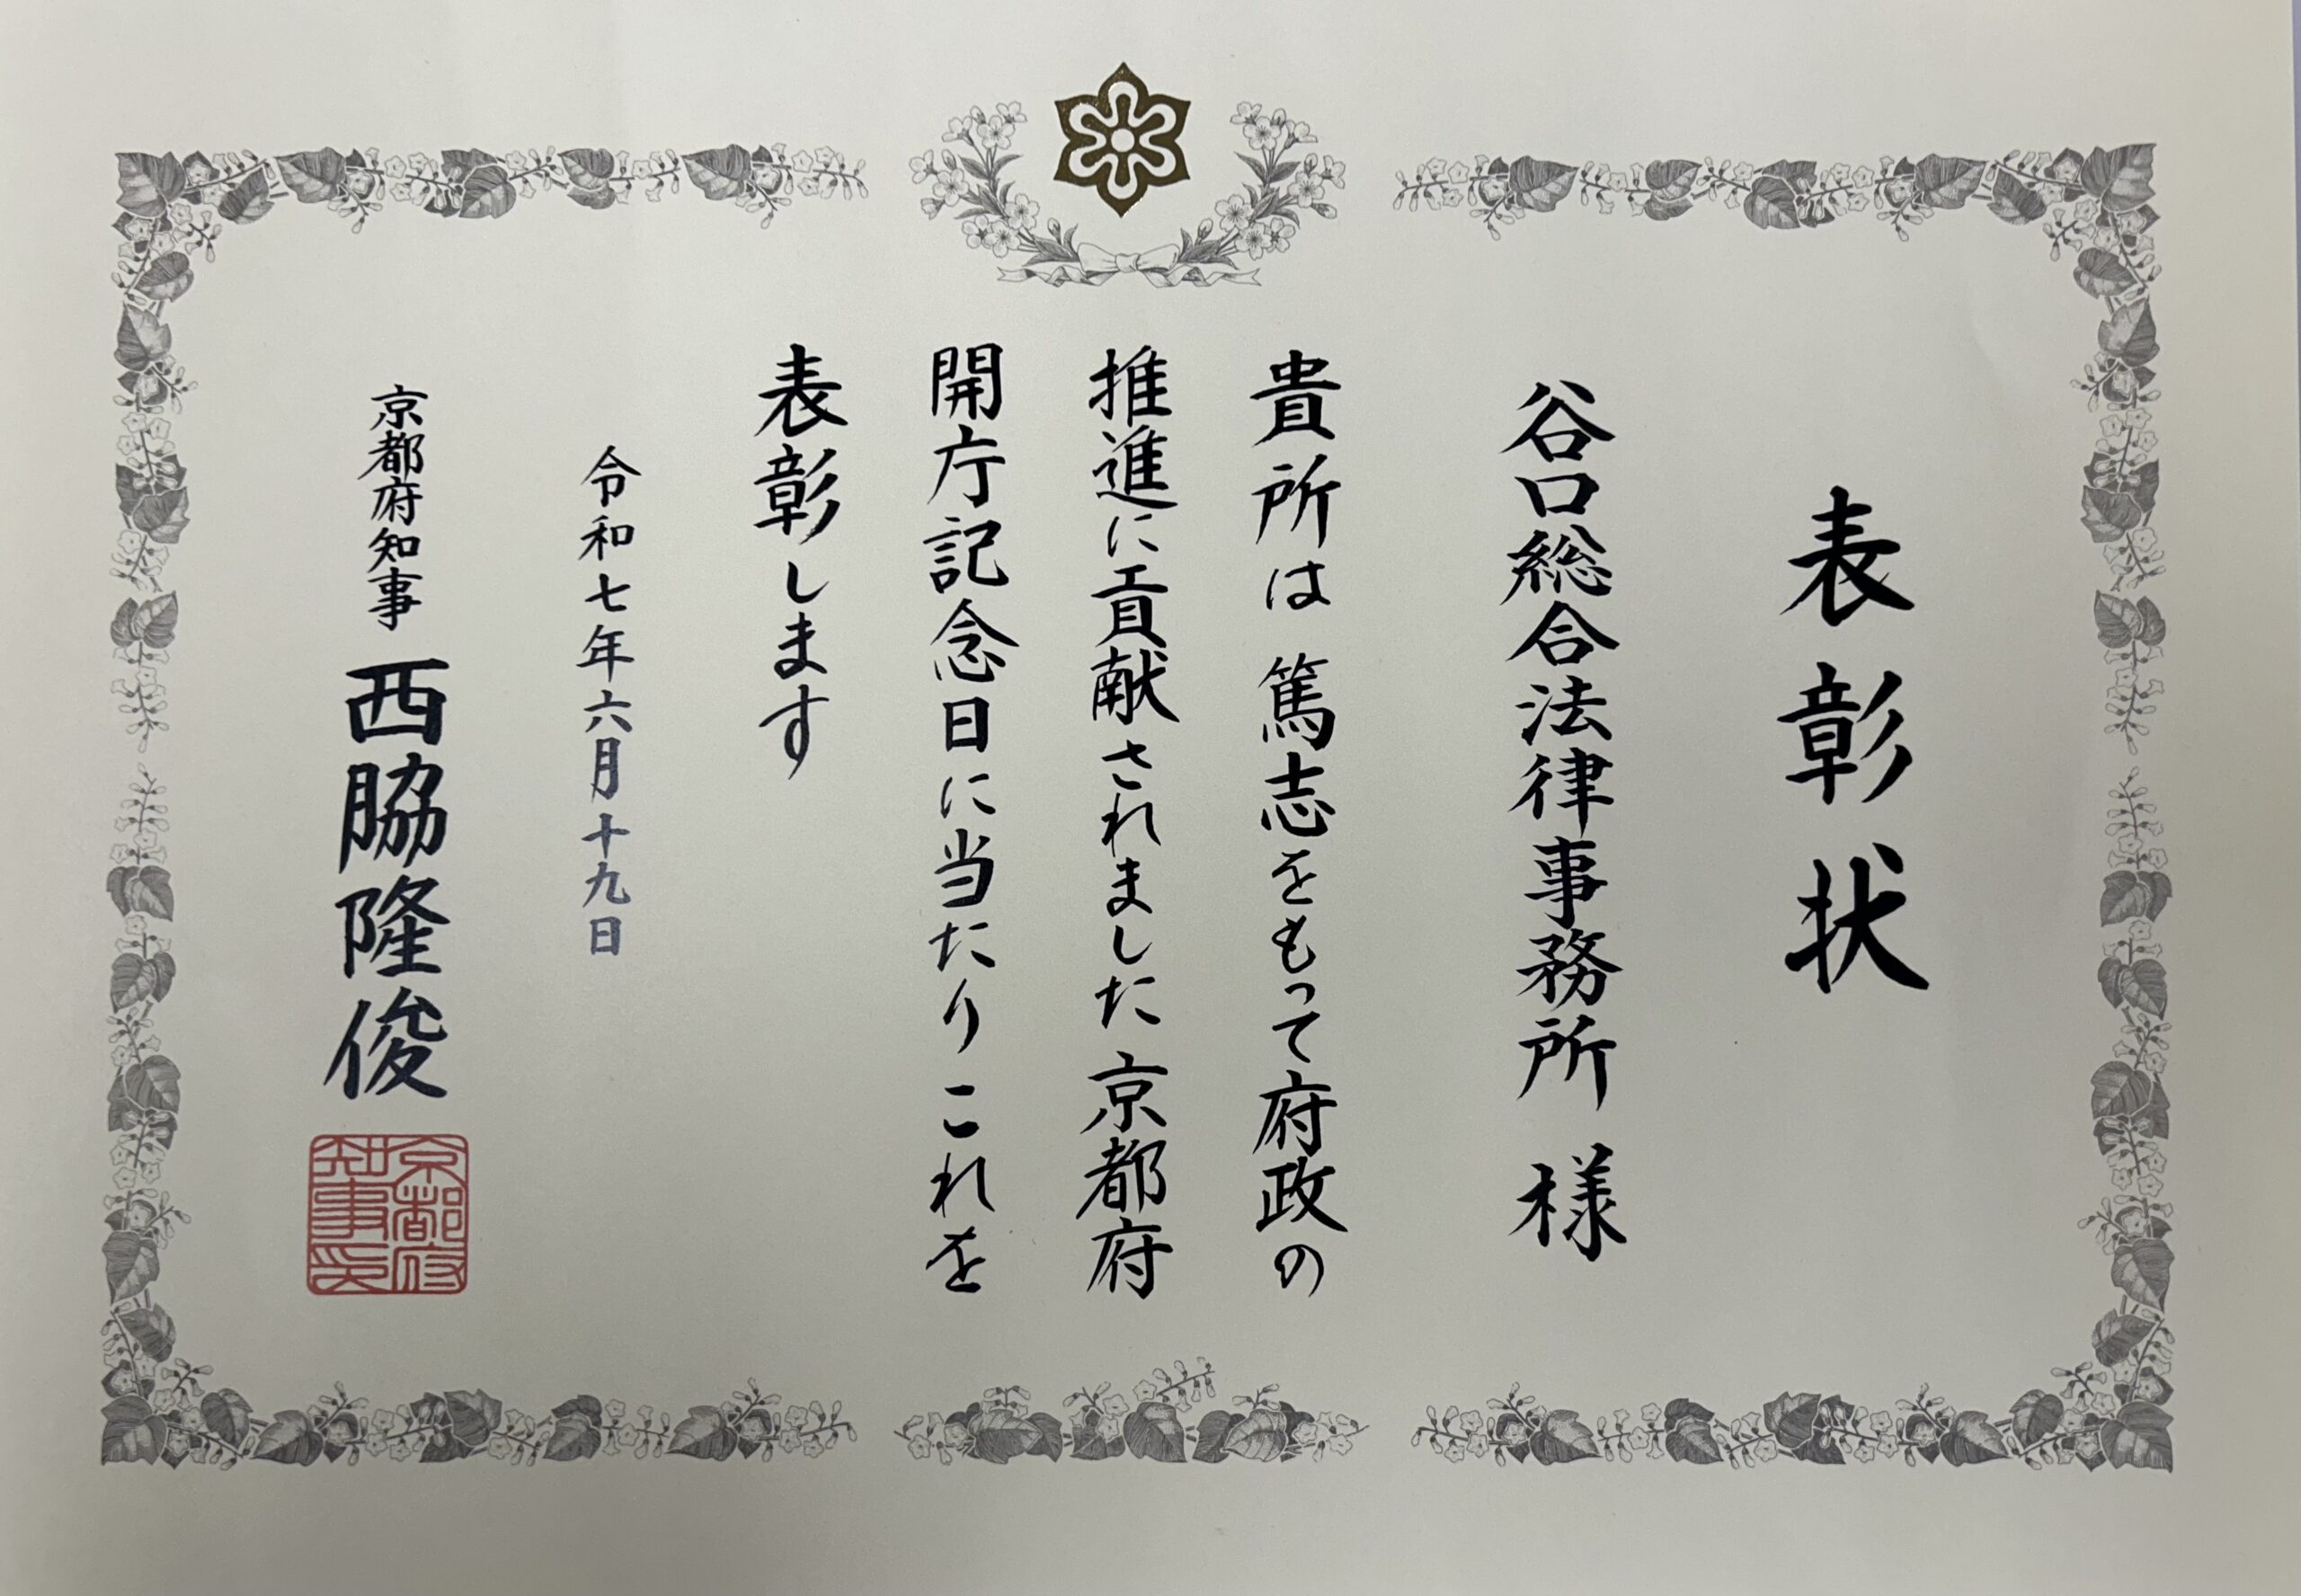 表彰状
谷口総合法律事務所 様
貴所は 篤志をもって府政の
推進に貢献されました 京都府
開庁記念日に当たり これを
表彰します
令和七年六月十九日
京都府知事 西脇隆俊
京都府
知事印